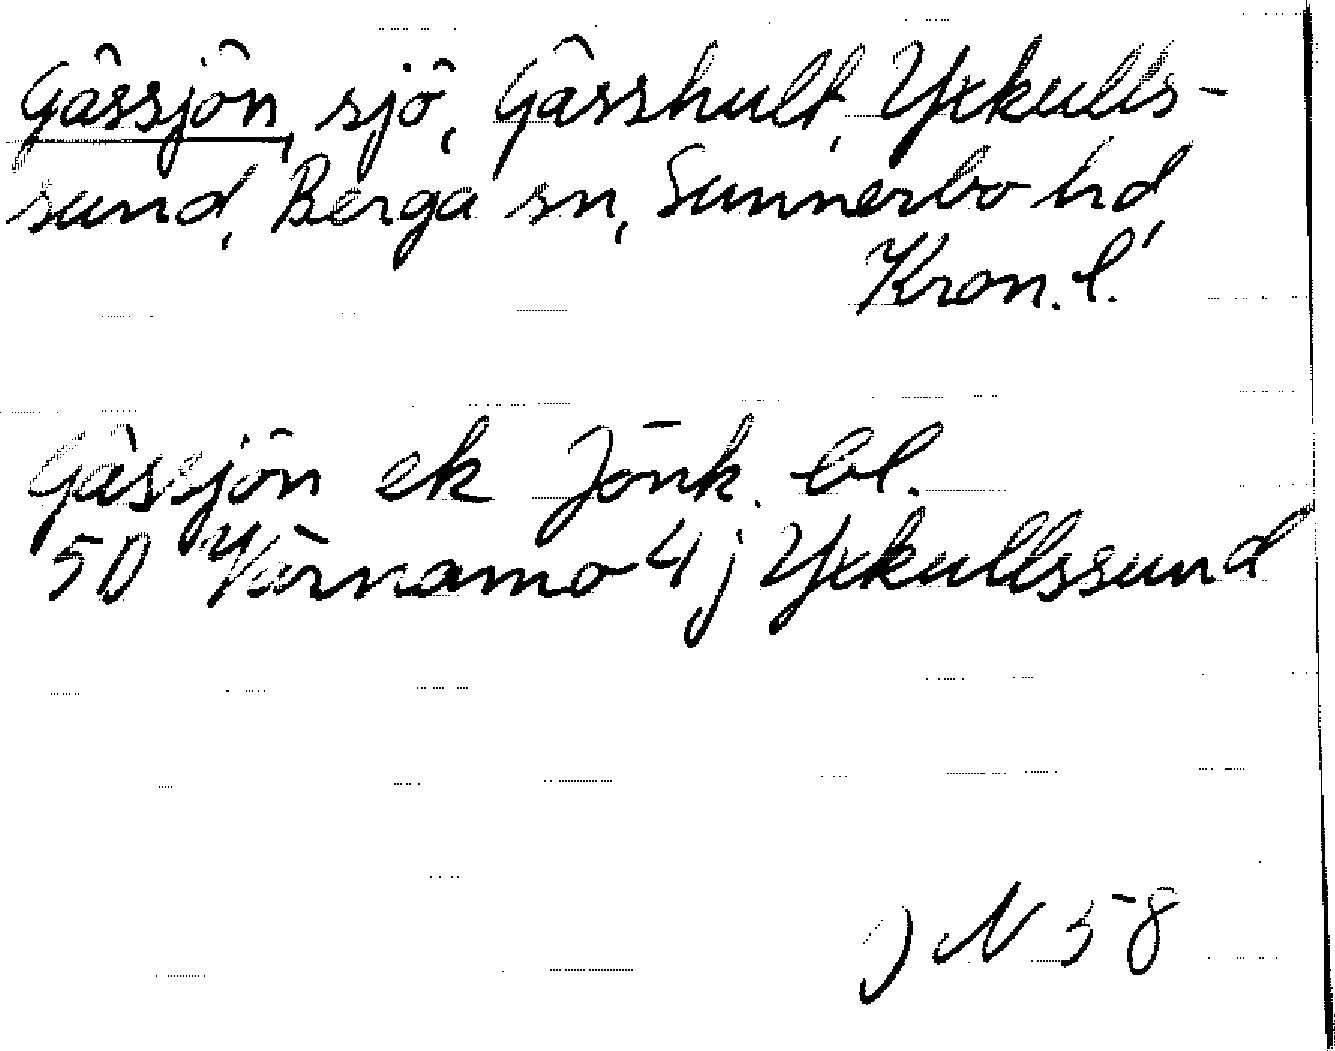 Gåssjön, sjö, Gåsshult, Yxkulls-
sund, Berga sn, Sunnerbo hd,
Kron. l.
Gåssjön ek Jönk. bl.
5D Värnamo 4j Yxkullssund
JN 58